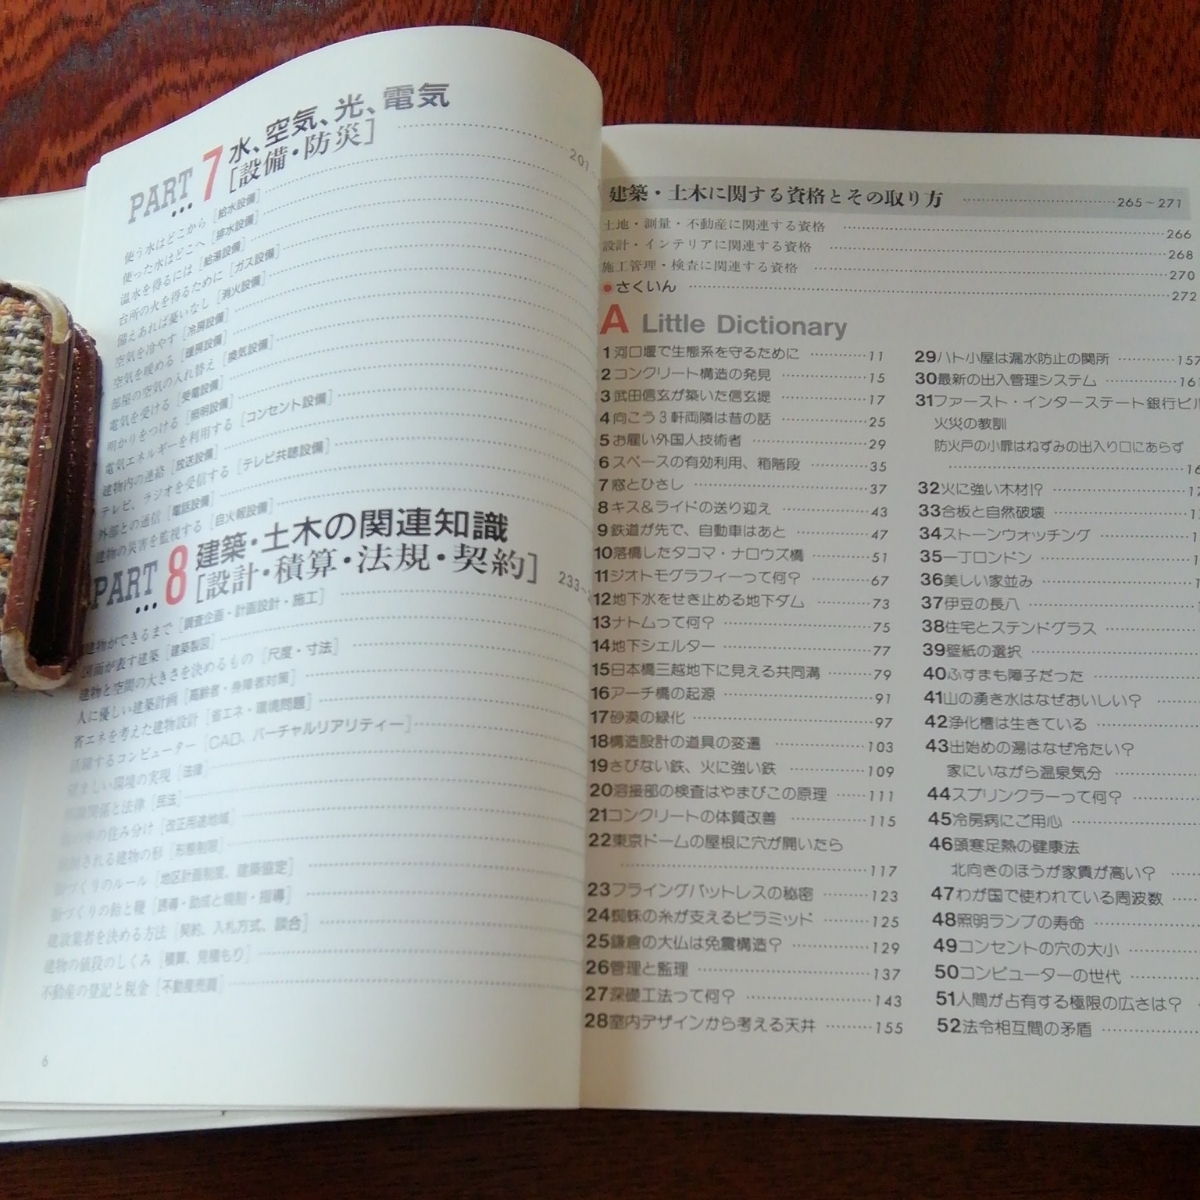 PART 7 水、空気、光、電気
[設備・防災] 201
使う水はどこから [給水設備]
使った水はどこへ [排水設備]
温水を得るには [給湯設備]
台所の火を得るために [ガス設備]
備えあれば憂いなし [消火設備]
空気を冷やす [冷房設備]
空気を暖める [暖房設備]
部屋の空気の入れ替え [換気設備]
電気を受ける [受電設備]
明かりをつける [照明設備]
電気エネルギーを利用する [コンセント設備]
建物内の連絡 [放送設備]
テレビ、ラジオを受信する [テレビ共聴設備]
外部との通信 [電話設備]
建物の災害を監視する [自火報設備]
PART 8 建築・土木の関連知識
[設計・積算・法規・契約] 233~
建物ができるまで [調査企画・計画設計・施工]
図面が表す建築 [建築製図]
建物と空間の大きさを決めるもの [尺度・寸法]
人に優しい建築計画 [高齢者・身障者対策]
省エネを考えた建物設計 [省エネ・環境問題]
活躍するコンピューター [CAD、バーチャルリアリティー]
望ましい環境の実現 [法律]
関係と法律 [民法]
の住み分け [改正用途地域]
される建物の形 [形態制限]
づくりのルール [地区計画制度、建築協定]
づくりの飴と鞭 [誘導・助成と規制・指導]
建設業者を決める方法 [契約、入札方式、談合]
建物の値段のしくみ [積算、見積もり]
不動産の登記と税金 [不動産売買]
6
建築・土木に関する資格とその取り方 265~271
土地・測量・不動産に関連する資格 266
設計・インテリアに関連する資格 268
施工管理・検査に関連する資格 270
●さくいん 272
A Little Dictionary
1 河口堰で生態系を守るために 11
2 コンクリート構造の発見 15
3 武田信玄が築いた信玄堤 17
4 向こう3軒両隣は昔の話 25
5 お雇い外国人技術者 29
6 スペースの有効利用、箱階段 35
7 窓とひさし 37
8 キス&ライドの送り迎え 43
9 鉄道が先で、自動車はあと 47
10 落橋したタコマ・ナロウズ橋 51
11 ジオトモグラフィーって何? 67
12 地下水をせき止める地下ダム 73
13 ナトムって何? 75
14 地下シェルター 77
15 日本橋三越地下に見える共同溝 79
16 アーチ橋の起源 91
17 砂漠の緑化 97
18 構造設計の道具の変遷 103
19 さびない鉄、火に強い鉄 109
20 溶接部の検査はやまびこの原理 111
21 コンクリートの体質改善 115
22 東京ドームの屋根に穴が開いたら
117
23 フライングバットレスの秘密 123
24 蜘蛛の糸が支えるピラミッド 125
25 鎌倉の大仏は免震構造? 129
26 管理と監理 137
27 深礎工法って何? 143
28 室内デザインから考える天井 155
29 ハト小屋は漏水防止の関所 157
30 最新の出入管理システム 16
31 ファースト・インターステート銀行ビル
火災の教訓
防火戸の小扉はねずみの出入り口にあらず
16
32 火に強い木材!? 17
33 合板と自然破壊 1
34 ストーンウォッチング 1
35 一丁ロンドン
36 美しい家並み
37 伊豆の長八
38 住宅とステンドグラス
39 壁紙の選択
40 ふすまも障子だった
41 山の湧き水はなぜおいしい?
42 浄化槽は生きている
43 出始めの湯はなぜ冷たい?
家にいながら温泉気分
44 スプリンクラーって何?
45 冷房病にご用心
46 頭寒足熱の健康法
北向きのほうが家賃が高い?
47 わが国で使われている周波数
48 照明ランプの寿命
49 コンセントの穴の大小
50 コンピューターの世代
51 人間が占有する極限の広さは?
52 法令相互間の矛盾